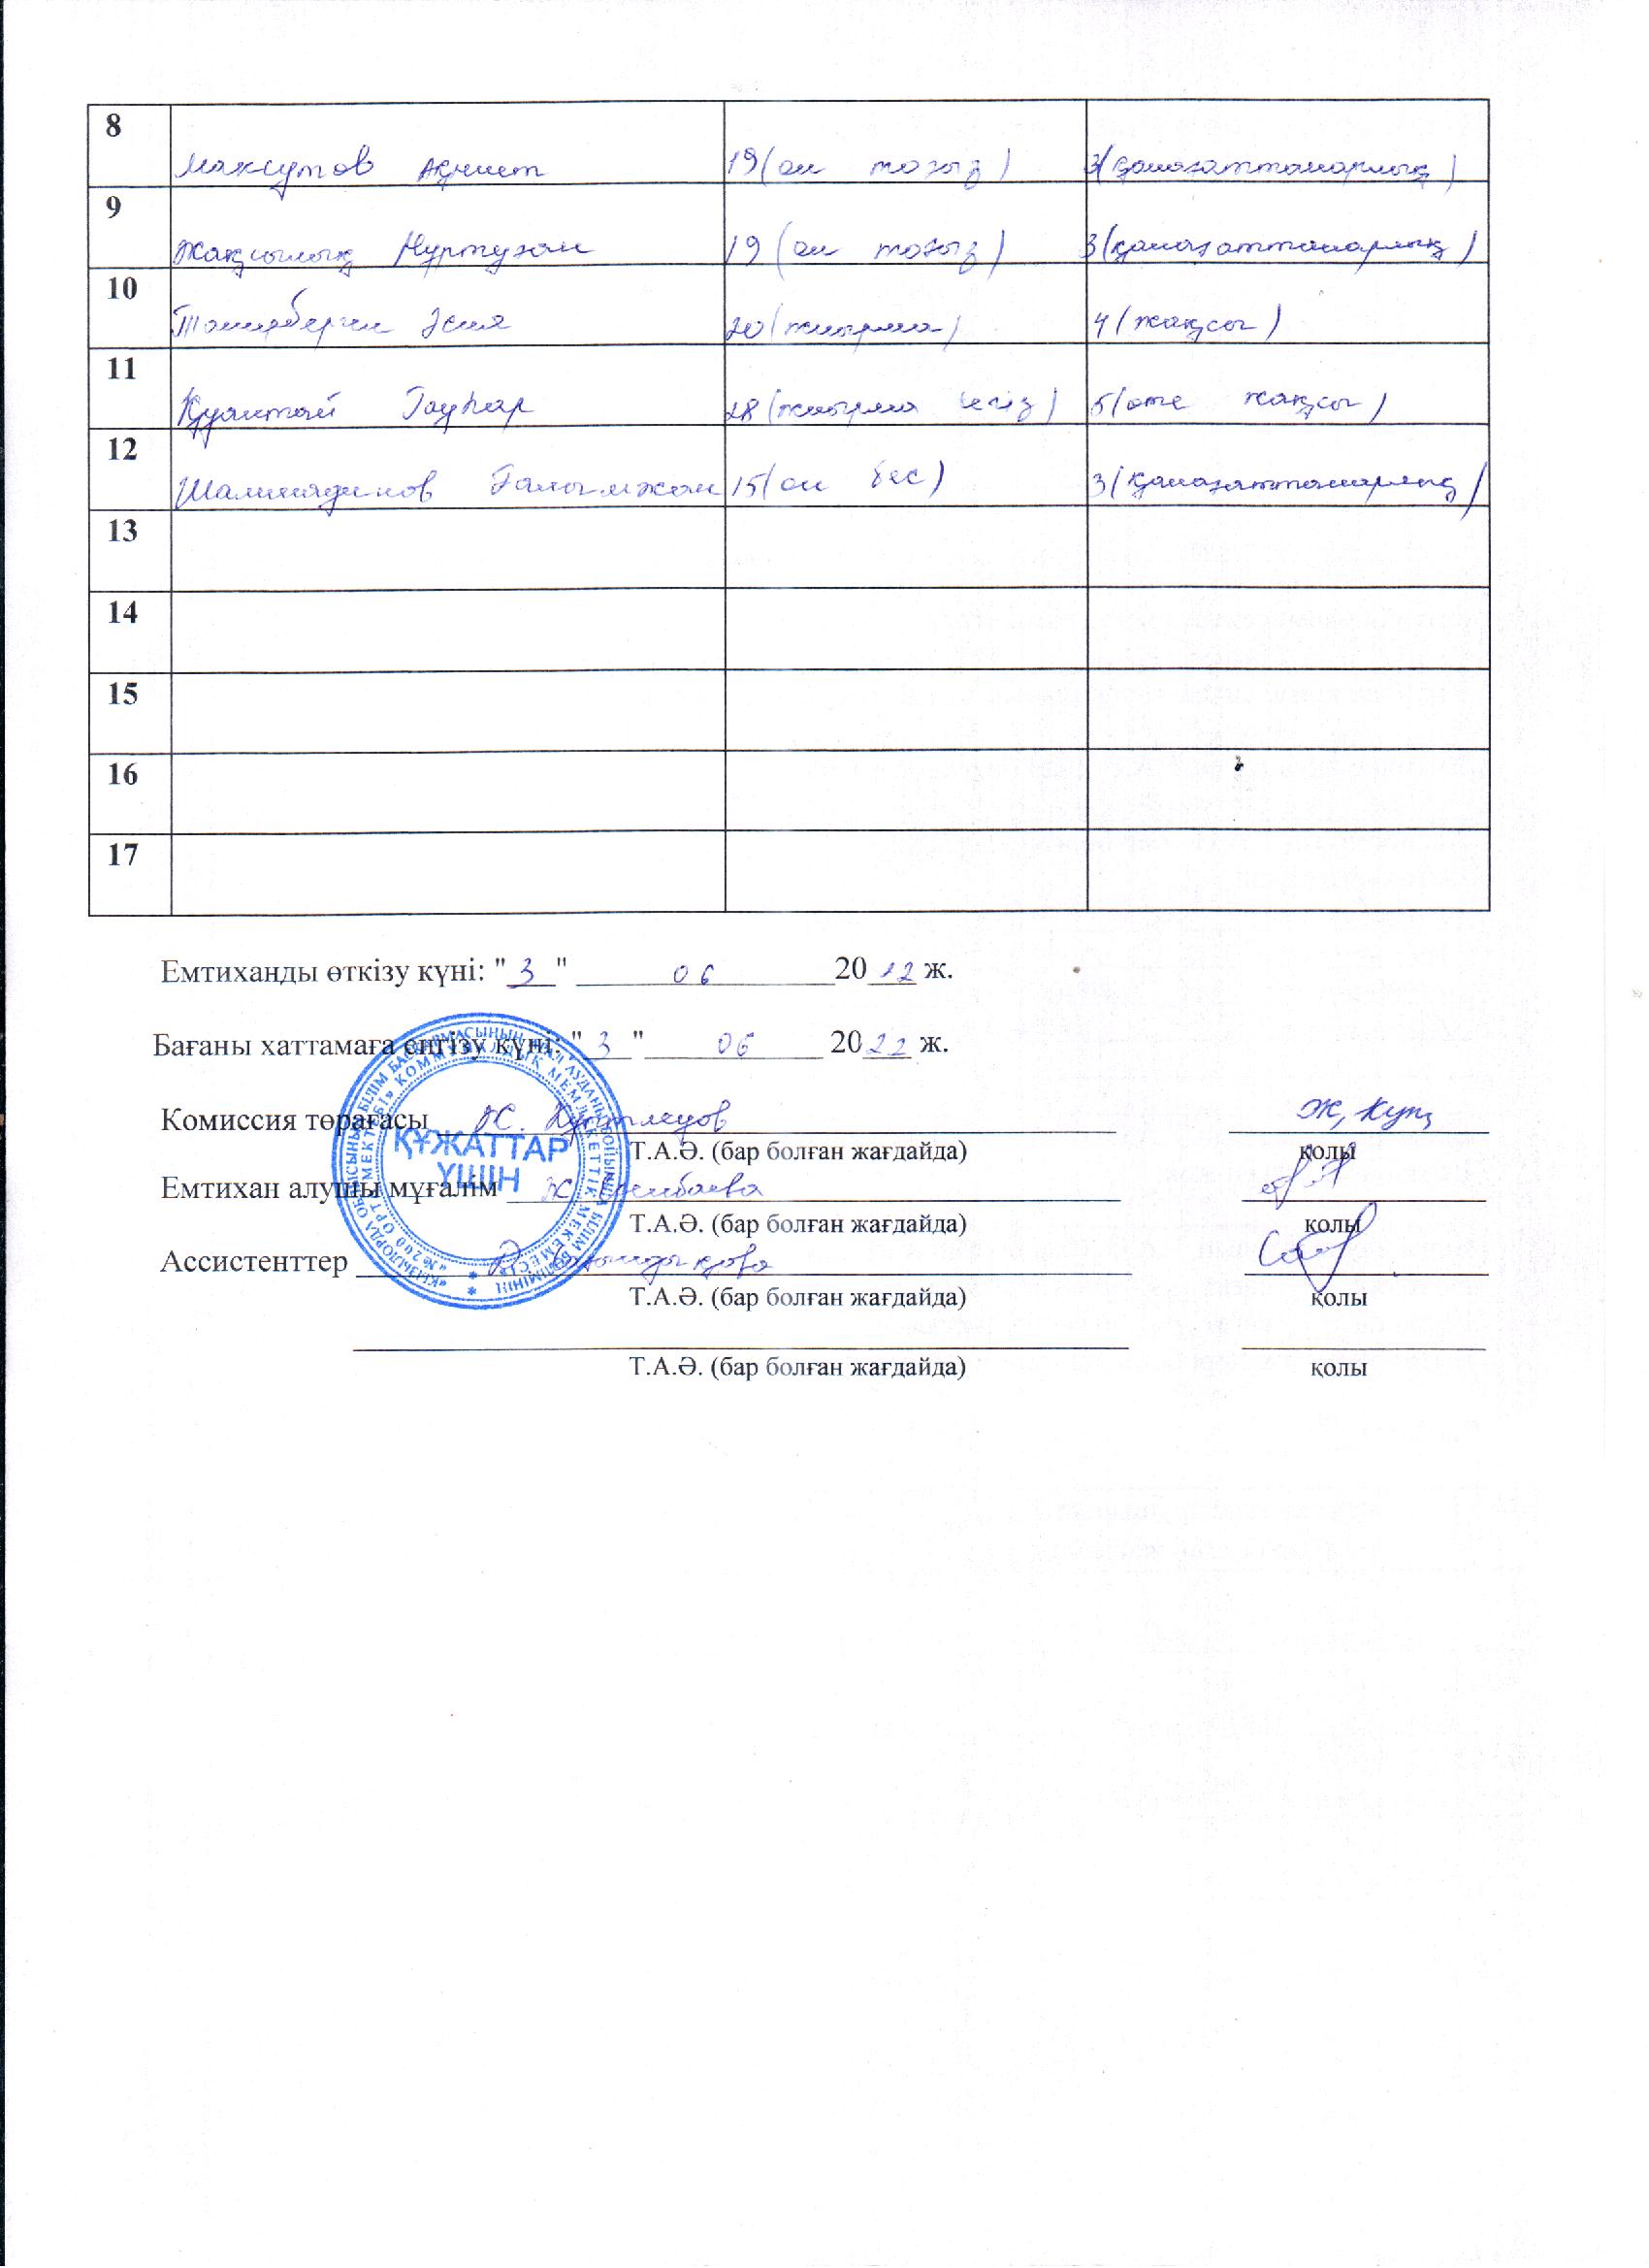 8 Максутов Ақниет 19 (он тоғыз) 3 (қанағаттанарлық)
9 Жақсылық Нұртуған 19 (он тоғыз) 3 (қанағаттанарлық)
10 Тәңірберген Әсия 20 (жиырма) 4 (жақсы)
11 Қуантай Гауһар 28 (жиырма сегіз) 5 (өте жақсы)
12 Ғалымжан 15 (он бес) 3 (қанағаттанарлық)
13
14
15
16
17
Емтиханды өткізу күні: " 3 " 06 20 22 ж.
Бағаны хаттамаға енгізу күні: " 3 " 06 20 22 ж.
Комиссия төрағасы Ж. Ж,
Т.А.Ә. (бар болған жағдайда) қолы
Емтихан алушы мұғалім Ж
Т.А.Ә. (бар болған жағдайда) қолы
Ассистенттер
Т.А.Ә. (бар болған жағдайда) қолы
Т.А.Ә. (бар болған жағдайда) қолы
ҚҰЖАТТАР
ҮШІН